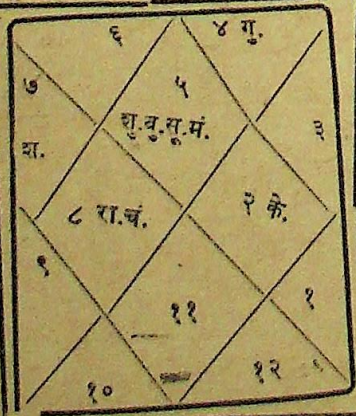 ६
४ गु.
७
५
शु.बु.सू.मं.
३
श.
८ रा.चं.
२ के.
९
११
१
१०
१२